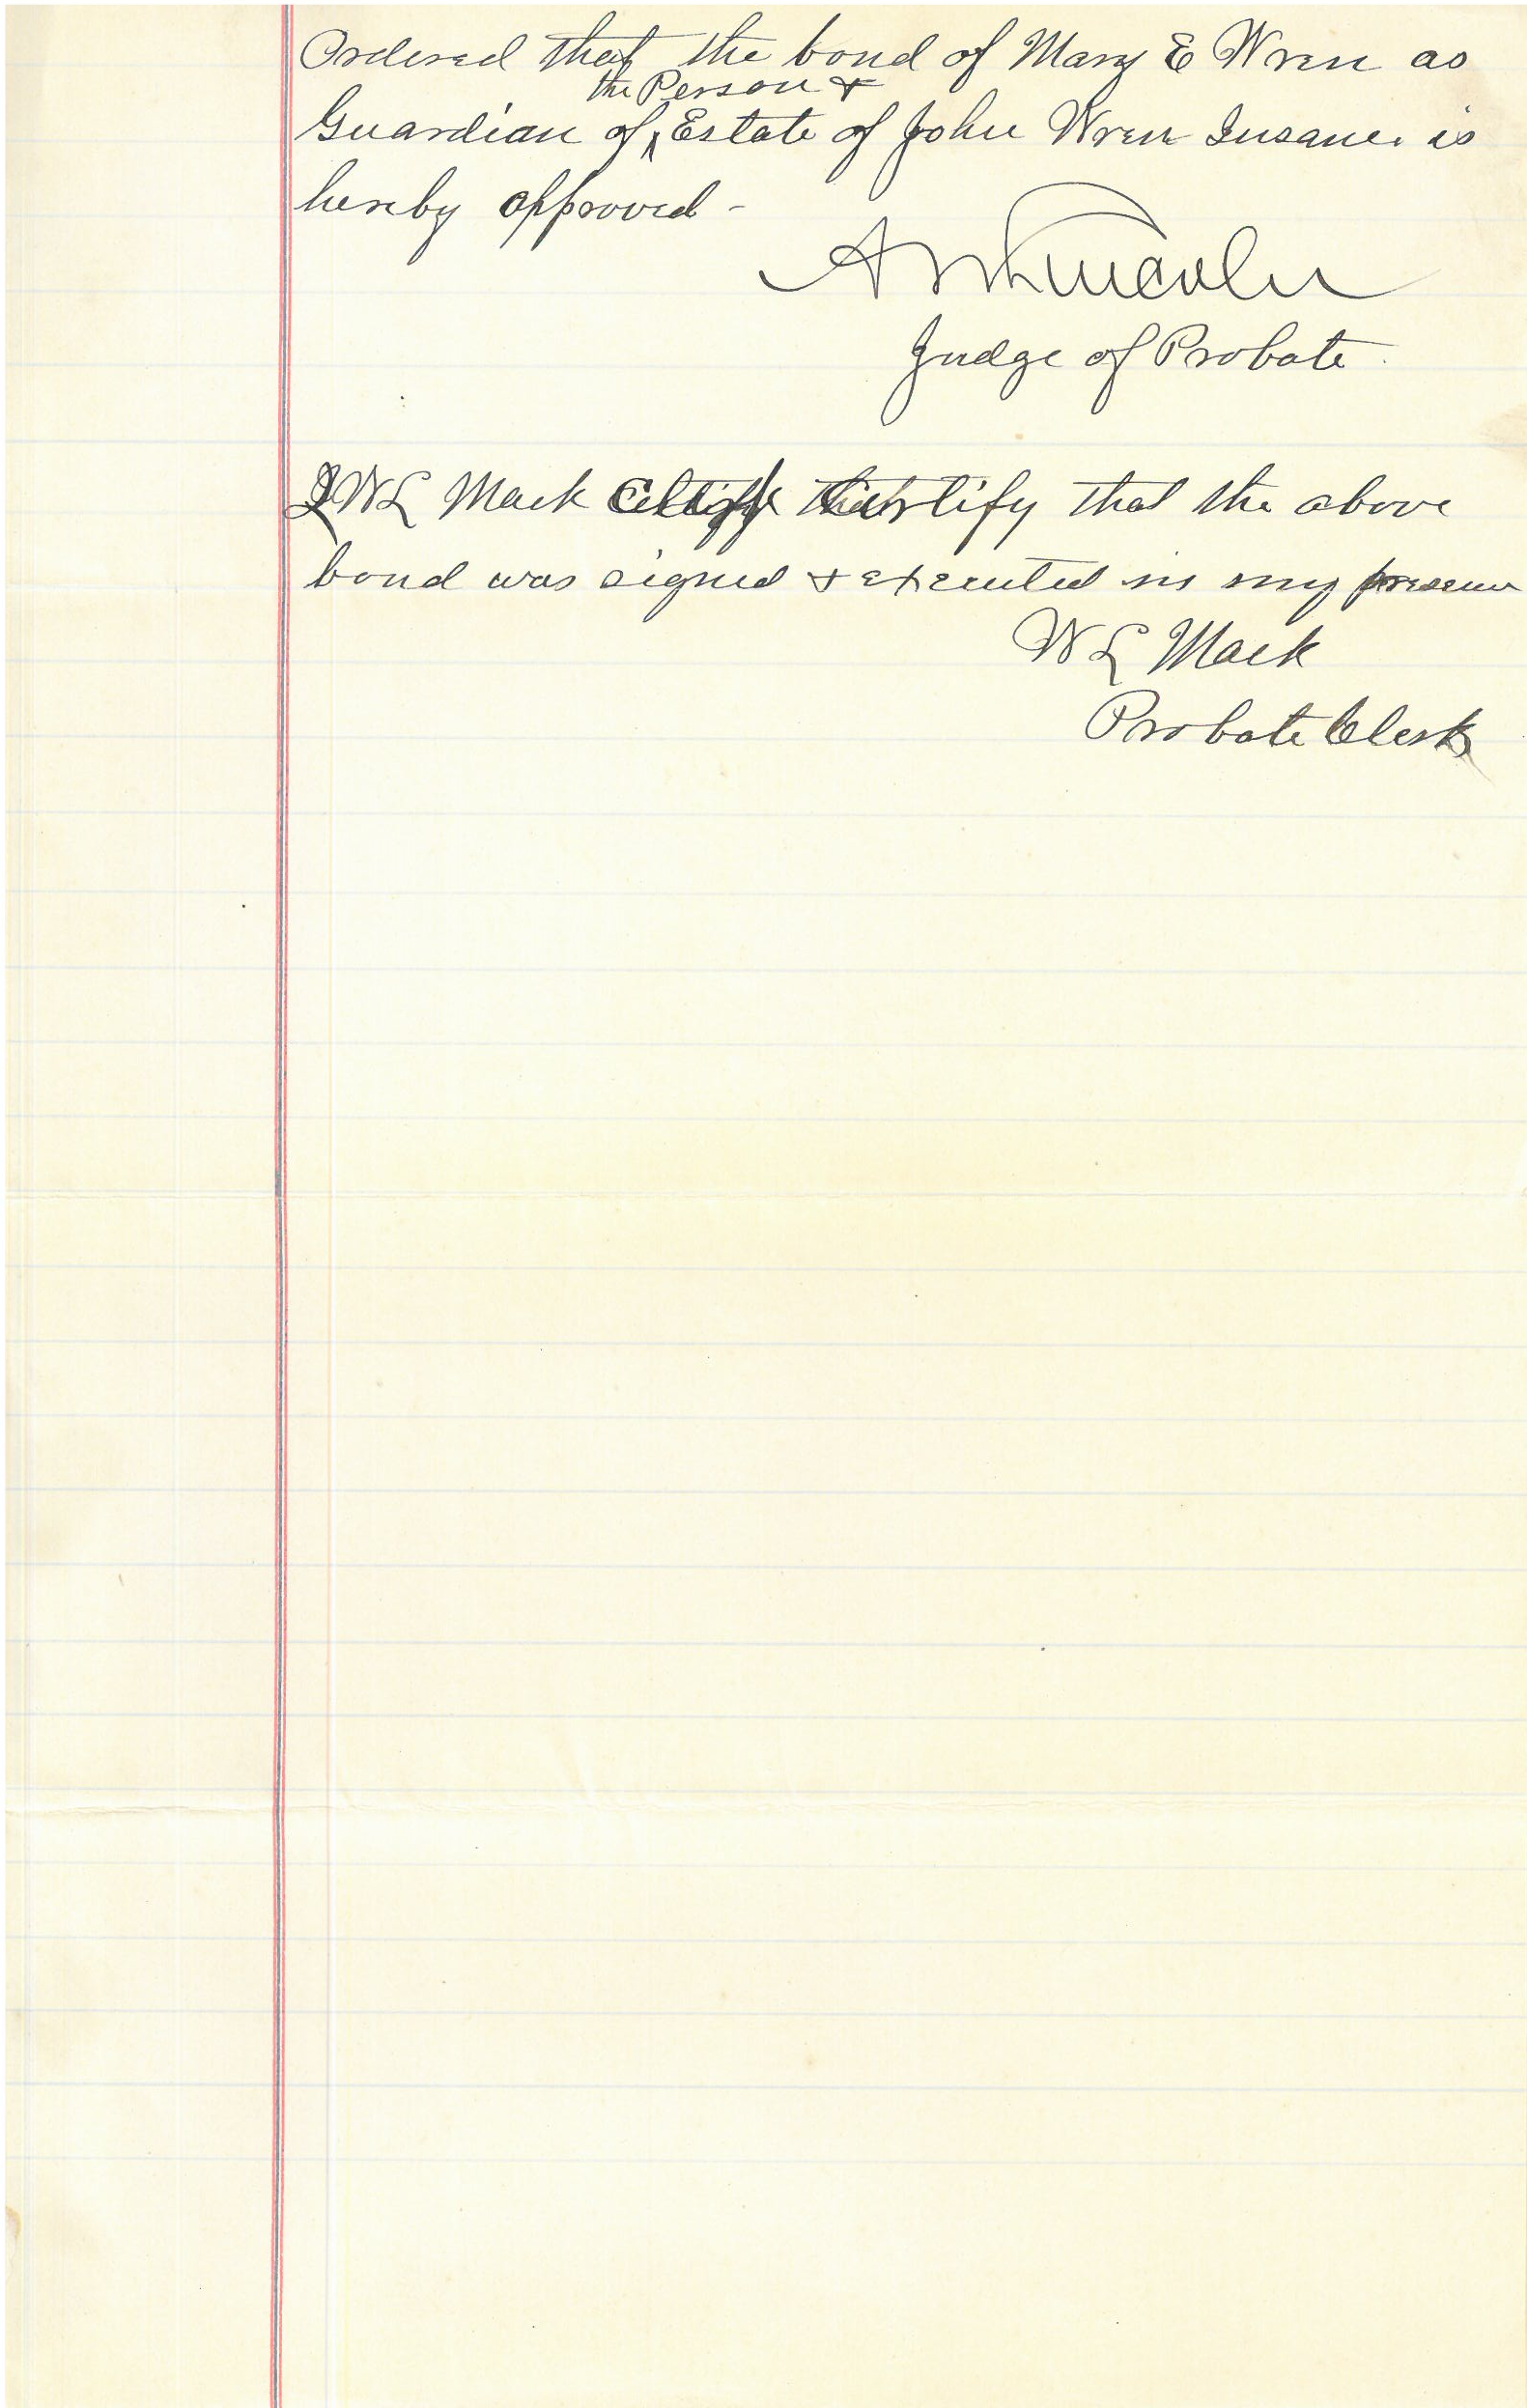 Ordered that the bond of Mary E Wren as
the Person &
Guardian of Estate of John Wren Insane. is
hereby approved -
Lincoln
Judge of Probate.
I W L Mack certify that the above
bond was signed & executed in my presence
W L Mack
Probate Clerk